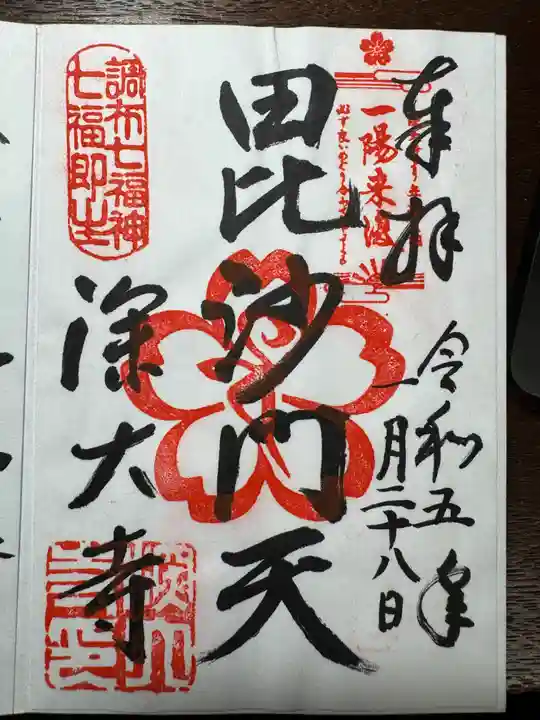 奉拝
令和五年
一月二十八日
一陽来復
毘沙門天
調布七福神
七福即生
深大寺